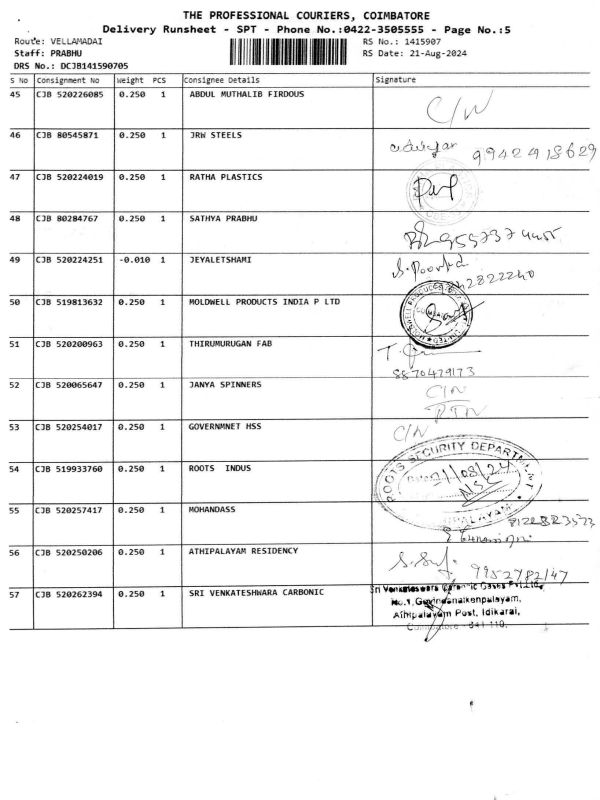 THE PROFESSIONAL COURIERS, COIMBATORE
Delivery Runsheet - SPT - Phone No.:0422-3505555 - Page No.:5
Route: VELLAMADAI
RS No.: 1415907
Staff: PRABHU
RS Date: 21-Aug-2024
DRS No.: DCJB141590705
S No Consignment No Weight PCS Consignee Details Signature
45 CJB 520226085 0.250 1 ABDUL MUTHALIB FIRDOUS C/N
46 CJB 80545871 0.250 1 JRW STEELS
9942418629
47 CJB 520224019 0.250 1 RATHA PLASTICS
48 CJB 80284767 0.250 1 SATHYA PRABHU
49 CJB 520224251 -0.010 1 JEYALETSHAMI
50 CJB 519813632 0.250 1 MOLDWELL PRODUCTS INDIA P LTD
51 CJB 520200963 0.250 1 THIRUMURUGAN FAB
8870479173
52 CJB 520065647 0.250 1 JANYA SPINNERS C/N
RTN
53 CJB 520254017 0.250 1 GOVERNMNET HSS C/N
54 CJB 519933760 0.250 1 ROOTS INDUS
ROOTS SECURITY DEPARTMENT
21/08/24
55 CJB 520257417 0.250 1 MOHANDASS
56 CJB 520250206 0.250 1 ATHIPALAYAM RESIDENCY
9952782147
57 CJB 520262394 0.250 1 SRI VENKATESHWARA CARBONIC
Sri Venkateswara Carbonic Gases Pvt.Ltd.,
No.1,Govindanaikenpalayam,
Athipalayam Post, Idikarai,
Coimbatore - 641 110.